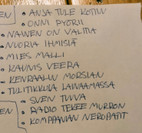 - ANJA TULE KOTIIN
- ONNI PYÖRII
- NAINEN ON VALTTIA
- NUORIA IHMISIÄ
- MIES MALLI
- KAUNIS VEERA
- KENRAALIN MORSIAN
- TULITIKKUJA LAINAAMASSA
- SVEN TUUVA
- RADIO TEKEE MURRON
- KOMPPANIAN NEROPATIT